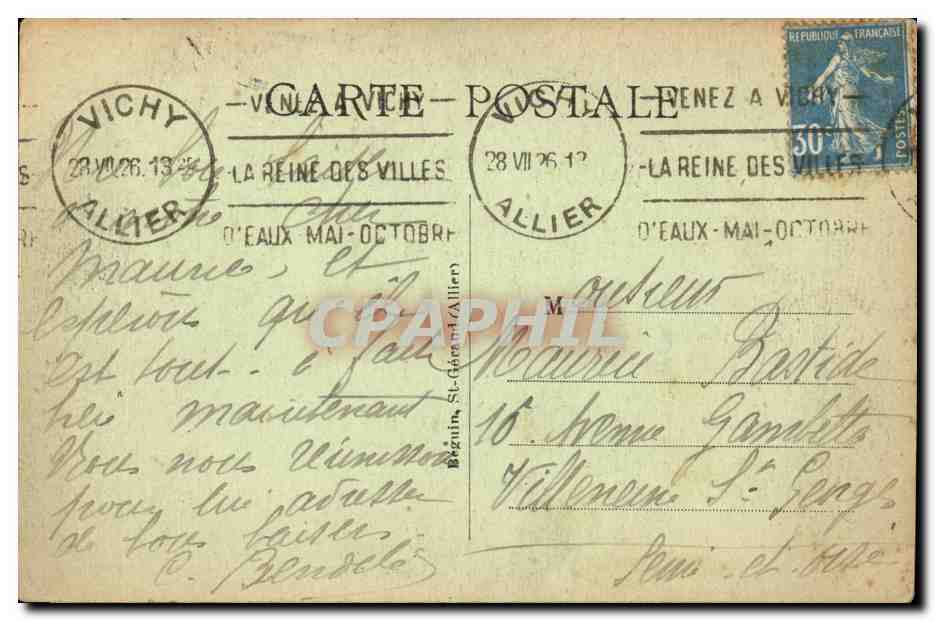 CARTE POSTALE
REPUBLIQUE FRANÇAISE
30c
POSTES
VICHY
28 VII 26. 13
ALLIER
VENEZ A VICHY
LA REINE DES VILLES
D'EAUX-MAI-OCTOBRE
VICHY
28 VII 26. 13
ALLIER
VENEZ A VICHY
LA REINE DES VILLES
D'EAUX-MAI-OCTOBRE
cher
Maurice, et
espérons qu'il
est tout à fait
bien maintenant
Nous nous réunissons
pour lui adresser
de bons baisers.
C.
Béguin, St-Gérand (Allier)
CPAPHIL
Monsieur
Maurice Bastide
16. Avenue Gambetta
Villeneuve St Georges
Seine-et-Oise